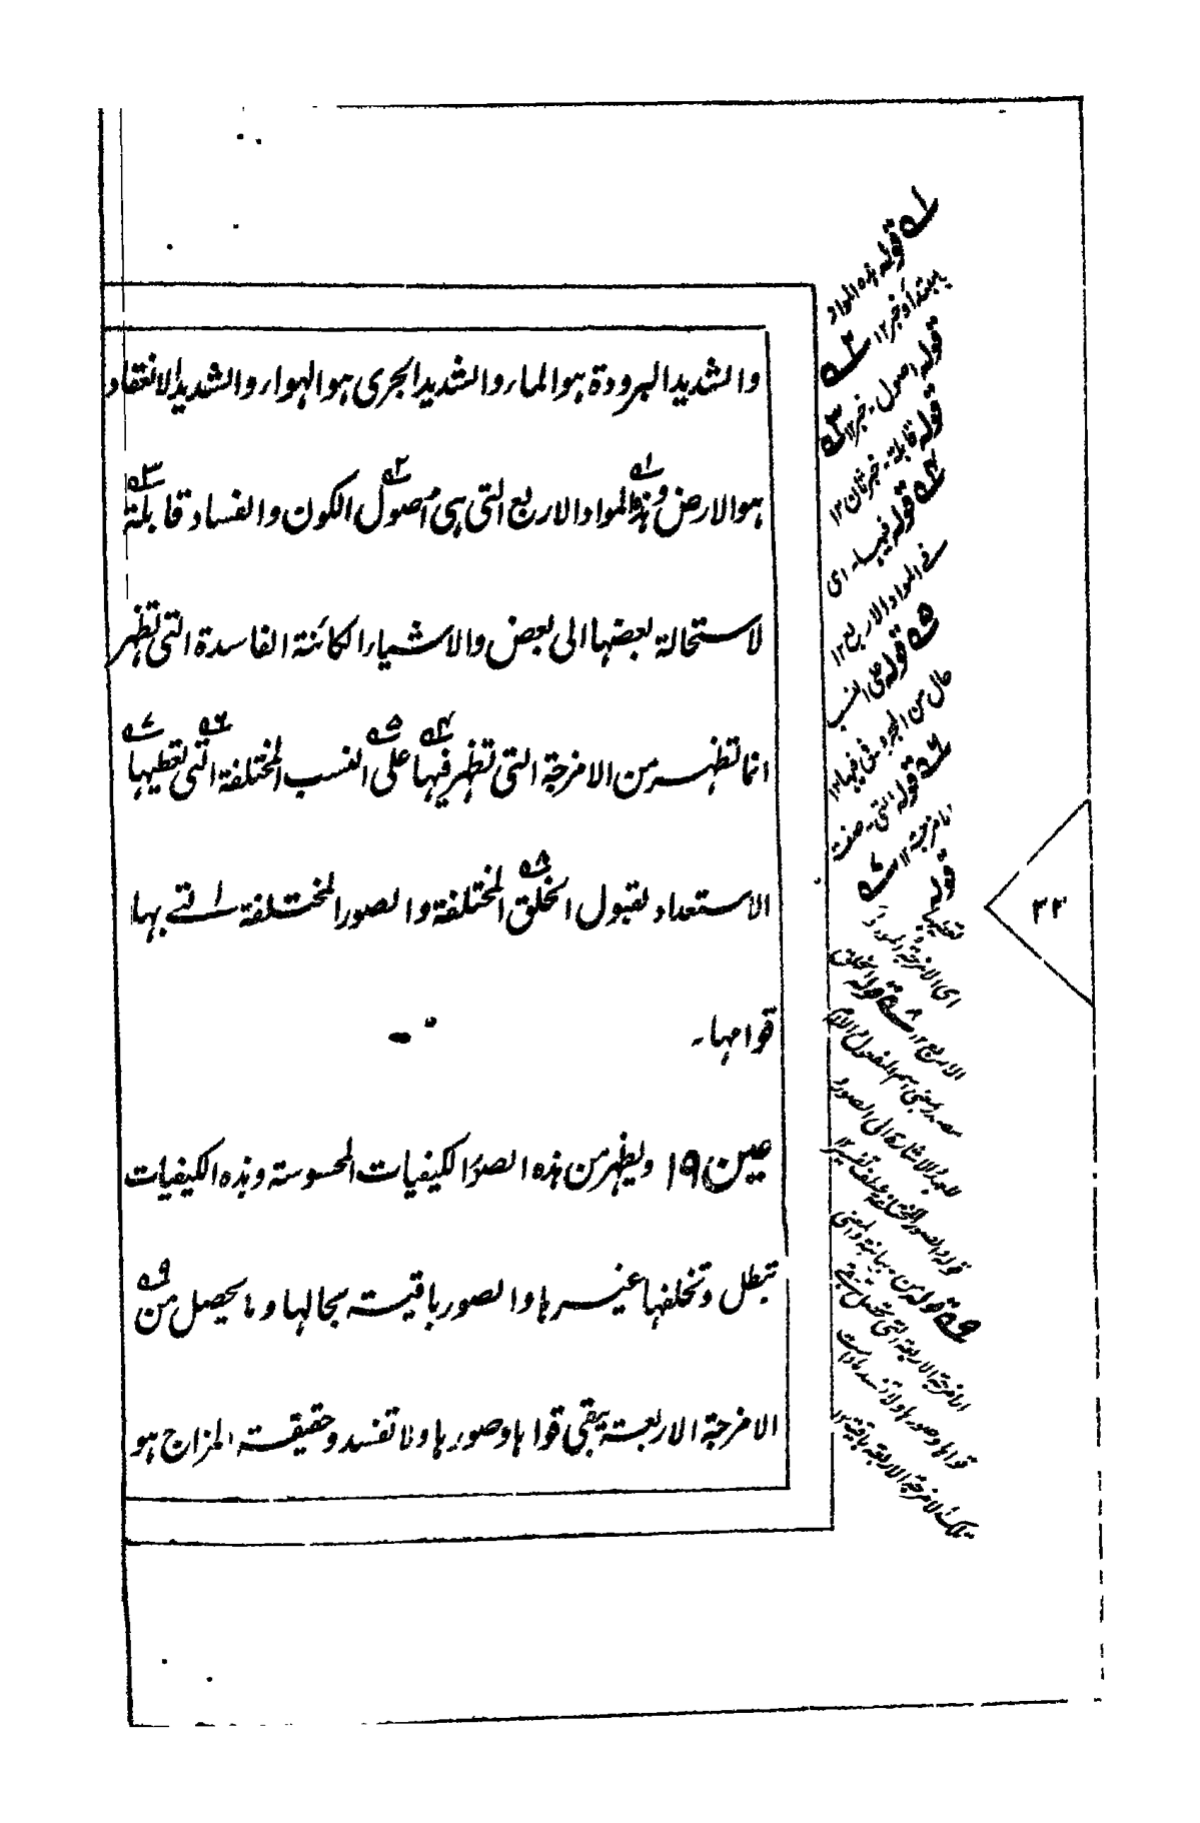 والشديد البرودة هو الماء والشديد الجرى هو الهواء والشديد الانعقاد
هو الارض وهذه المواد الاربع التى هى اصول الكون والفساد قابلة
لاستحالة بعضها الى بعض والاشياء الكائنة الفاسدة التى تظهر
انما تظهر من الامزجة التى تظهر فيها على النسب المختلفة التى تعطيها
الاستعداد لقبول الخلق المختلفة والصور المختلفة التى بها
قوامها۔
عين ١٩ ويظهر من هذه الصور الكيفيات المحسوسة وهذه الكيفيات
تبطل وتخلفها غيرها والصور باقية بحالها وما يحصل من
الامزجة الاربعة يبقى قواها وصورها ولا تفسد وحقيقة المزاج هو
١ قوله هذه المواد
مبتدأ وخبر ١٢ ٢
قوله اصول۔ خبر ١٢ ٣
قوله قابلة۔ خبر ثان ١٢
٤ قوله فيها۔ اى
فى المواد الاربع ١٢
٥ قوله على النسب
حال من المجرور فى فيها ١٢
٦ قوله التى۔ صفت
امزجة ١٢ ٧ قوله
تعطيها
اى الامزجة المواد
الاربع ١٢ ٨ قوله الخلق
مصدر بمعنى اسم المفعول واللام
للعهد والاشارة الى الصور
قوله والصور المختلفة عطف تفسير ١٢
٩ قوله من۔ بيانية والمعنى
امزجة الاربعة التى تحصل
قواها وصورها ولا تفسد مادامت
تلك الامزجة الاربعة باقية ١٢
٣٣